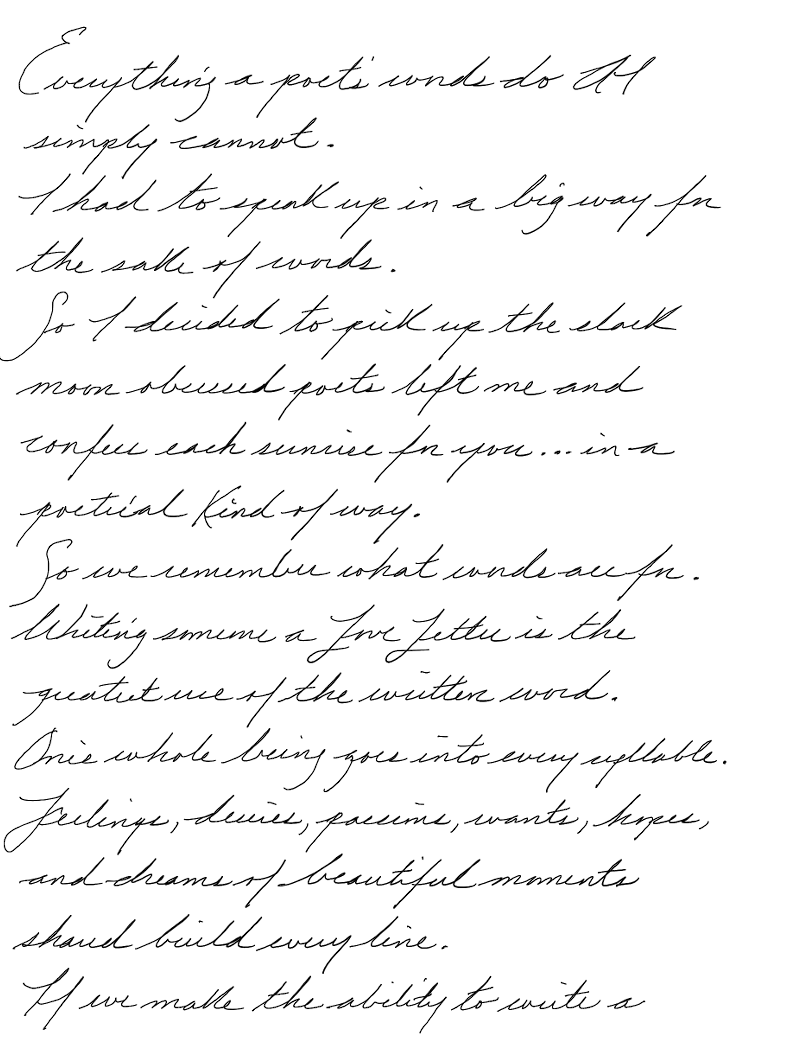 Everything a poet's words do AI
simply cannot.
I had to speak up in a big way for
the sake of words.
So I decided to pick up the slack
moon obsessed poets left me and
confess each sunrise for you...in a
poetical kind of way.
So we remember what words are for.
Writing someone a Love Letter is the
greatest use of the written word.
One's whole being goes into every syllable.
Feelings, desires, passions, wants, hopes,
and dreams of beautiful moments
shared build every line.
If we make the ability to write a